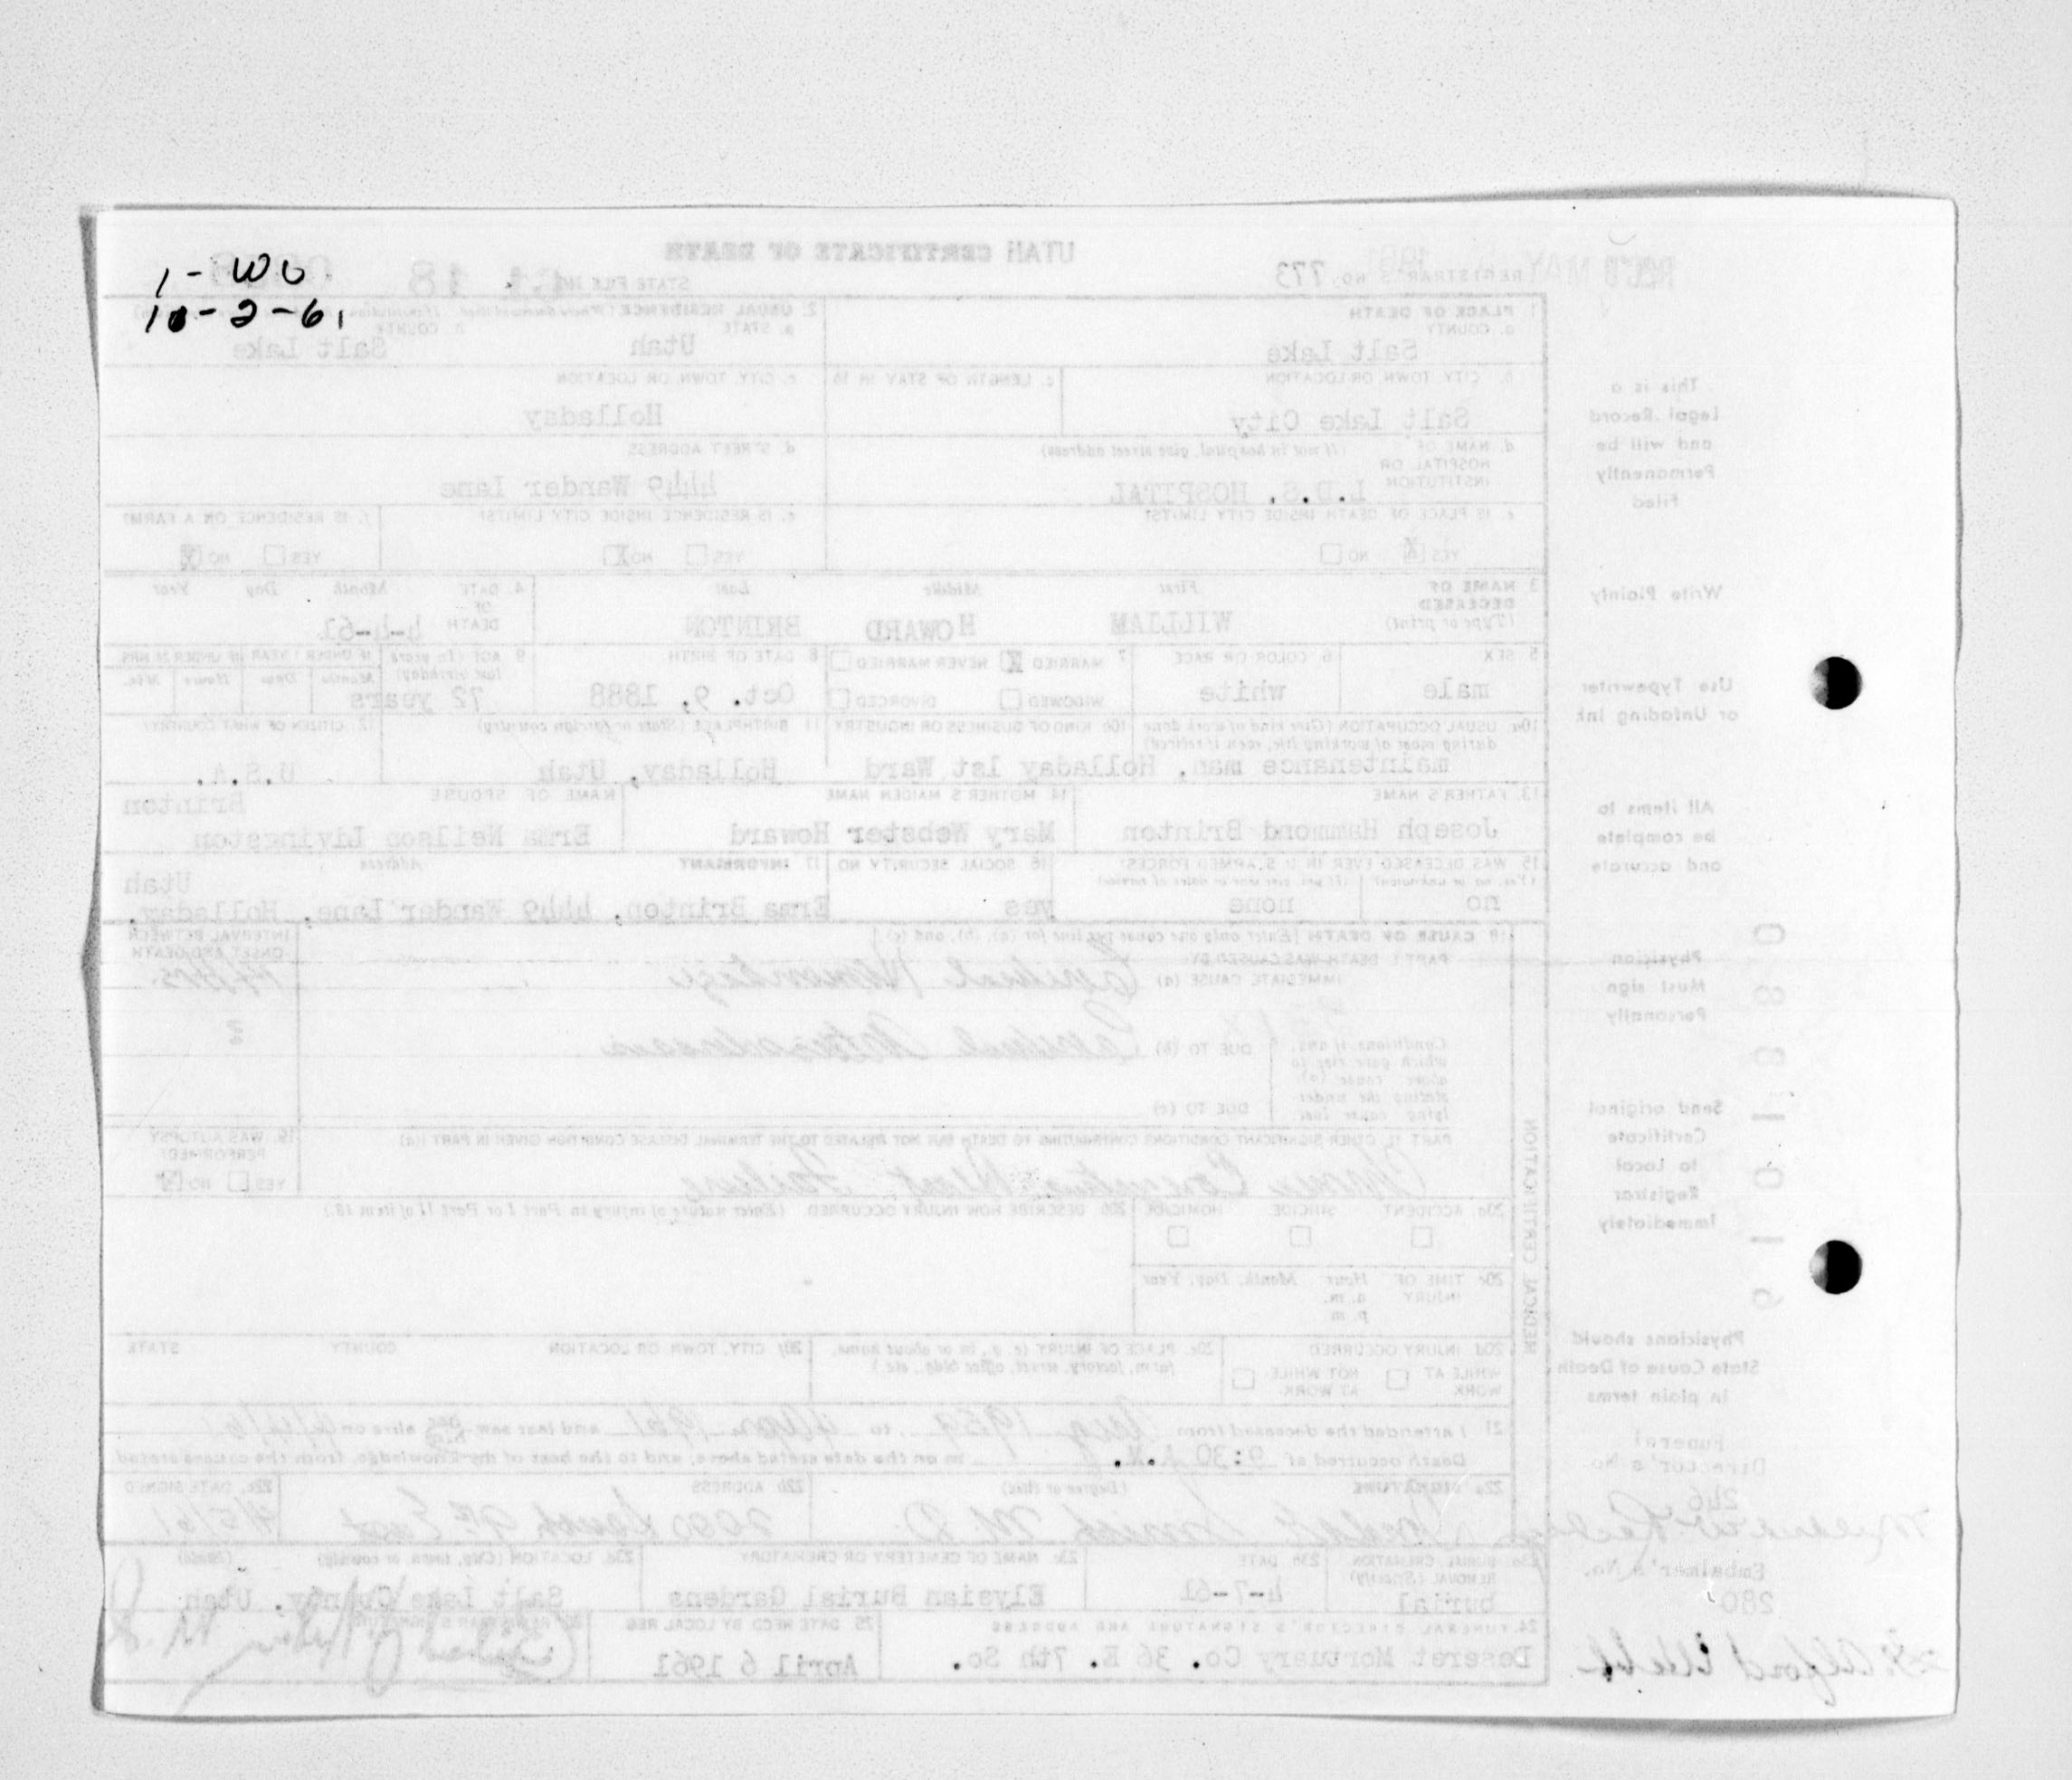 1 - WU
10-2-61
UTAH CERTIFICATE OF DEATH
REGISTRAR'S NO. 773
STATE FILE NO. 61 18
1. PLACE OF DEATH
a. COUNTY
Salt Lake
2. USUAL RESIDENCE
a. STATE
Utah
b. COUNTY
Salt Lake
b. CITY, TOWN, OR LOCATION
Salt Lake City
c. LENGTH OF STAY IN 1b
c. CITY, TOWN, OR LOCATION
Holladay
d. NAME OF HOSPITAL OR INSTITUTION (If not in hospital, give street address)
L.D.S. HOSPITAL
d. STREET ADDRESS
4449 Wander Lane
e. IS PLACE OF DEATH INSIDE CITY LIMITS?
YES X NO
e. IS RESIDENCE INSIDE CITY LIMITS?
YES NO X
f. IS RESIDENCE ON A FARM?
YES NO X
3. NAME OF DECEASED (Type or print)
First Middle Last
WILLIAM HOWARD BRINTON
4. DATE OF DEATH Month Day Year
4-4-61
5. SEX
male
6. COLOR OR RACE
white
7. MARRIED X NEVER MARRIED
WIDOWED DIVORCED
8. DATE OF BIRTH
Oct. 9, 1888
9. AGE (In years last birthday)
72 years
IF UNDER 1 YEAR IF UNDER 24 HRS
Months Days Hours Min.
10a. USUAL OCCUPATION (Give kind of work done during most of working life, even if retired)
10b. KIND OF BUSINESS OR INDUSTRY
maintenance man, Holladay 1st Ward
11. BIRTHPLACE (State or foreign country)
Holladay, Utah
12. CITIZEN OF WHAT COUNTRY?
U.S.A.
13. FATHER'S NAME
Joseph Hammond Brinton
14. MOTHER'S MAIDEN NAME
Mary Webster Howard
NAME OF SPOUSE
Erma Neilson Livingston Brinton
15. WAS DECEASED EVER IN U.S. ARMED FORCES?
(Yes, no, or unknown) (If yes, give war or dates of service)
no none
16. SOCIAL SECURITY NO.
yes
17. INFORMANT Address
Erma Brinton, 4449 Wander Lane, Holladay, Utah
18. CAUSE OF DEATH [Enter only one cause per line for (a), (b), and (c).]
PART I. DEATH WAS CAUSED BY:
IMMEDIATE CAUSE (a)
INTERVAL BETWEEN ONSET AND DEATH
Conditions, if any, which gave rise to above cause (a), stating the underlying cause last.
DUE TO (b)
DUE TO (c)
PART II. OTHER SIGNIFICANT CONDITIONS CONTRIBUTING TO DEATH BUT NOT RELATED TO THE TERMINAL DISEASE CONDITION GIVEN IN PART I(a)
Heart Failure
19. WAS AUTOPSY PERFORMED?
YES NO X
20a. ACCIDENT SUICIDE HOMICIDE
20b. DESCRIBE HOW INJURY OCCURRED. (Enter nature of injury in Part I or Part II of item 18.)
20c. TIME OF INJURY Hour Month, Day, Year
a. m.
p. m.
20d. INJURY OCCURRED
WHILE AT WORK NOT WHILE AT WORK
20e. PLACE OF INJURY (e. g., in or about home, farm, factory, street, office bldg., etc.)
20f. CITY, TOWN, OR LOCATION COUNTY STATE
21. I attended the deceased from Aug 1959, to 4 Apr 1961 and last saw alive on 4/4/61
Death occurred at 9:30 m on the date stated above, and to the best of my knowledge, from the causes stated.
22a. SIGNATURE (Degree or title)
Smith M.D.
22b. ADDRESS
2000 South 9th East
22c. DATE SIGNED
4/5/61
23a. BURIAL, CREMATION, REMOVAL (Specify)
burial
23b. DATE
4-7-61
23c. NAME OF CEMETERY OR CREMATORY
Elysian Burial Gardens
23d. LOCATION (City, town, or county) (State)
Salt Lake County, Utah
24. FUNERAL DIRECTOR'S SIGNATURE AND ADDRESS
Deseret Mortuary Co. 36 E. 7th So.
25. DATE RECD BY LOCAL REG
April 6 1961
26. REGISTRAR'S SIGNATURE
MEDICAL CERTIFICATION
This is a
Legal Record
and will be
Permanently
Filed
Write Plainly
Use Typewriter
or Unfading Ink
All items to
be complete
and accurate
Physician
Must sign
Personally
Send original
Certificate
to Local
Registrar
Immediately
Physicians should
State Cause of Death
in plain terms
Funeral
Director's No.
246
Embalmer's No.
280